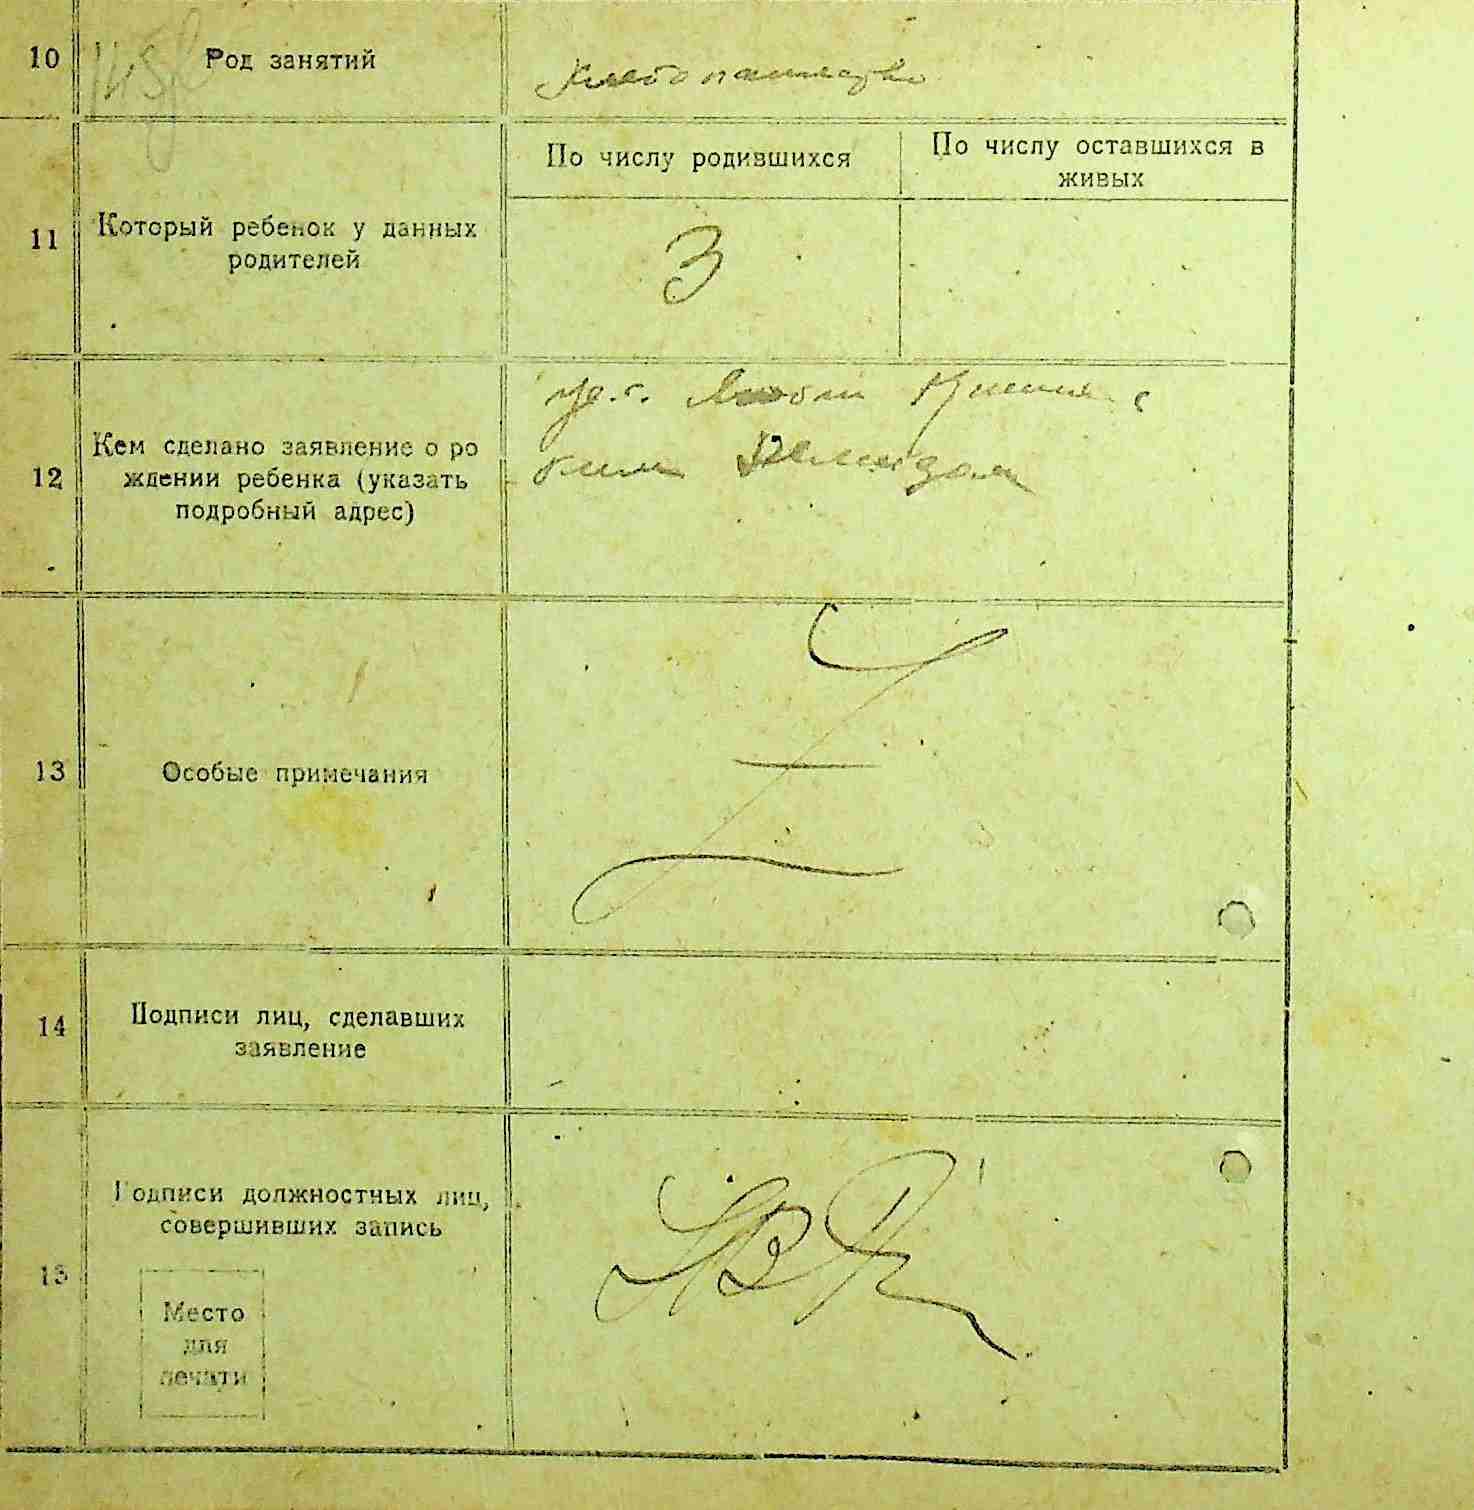 10
Род занятий
Хлебопашество
По числу родившихся
По числу оставшихся в
живых
11
Который ребенок у данных
родителей
3
12
Кем сделано заявление о ро
ждении ребенка (указать
подробный адрес)
13
Особые примечания
14
Подписи лиц, сделавших
заявление
15
Подписи должностных лиц,
совершивших запись
Место
для
печати